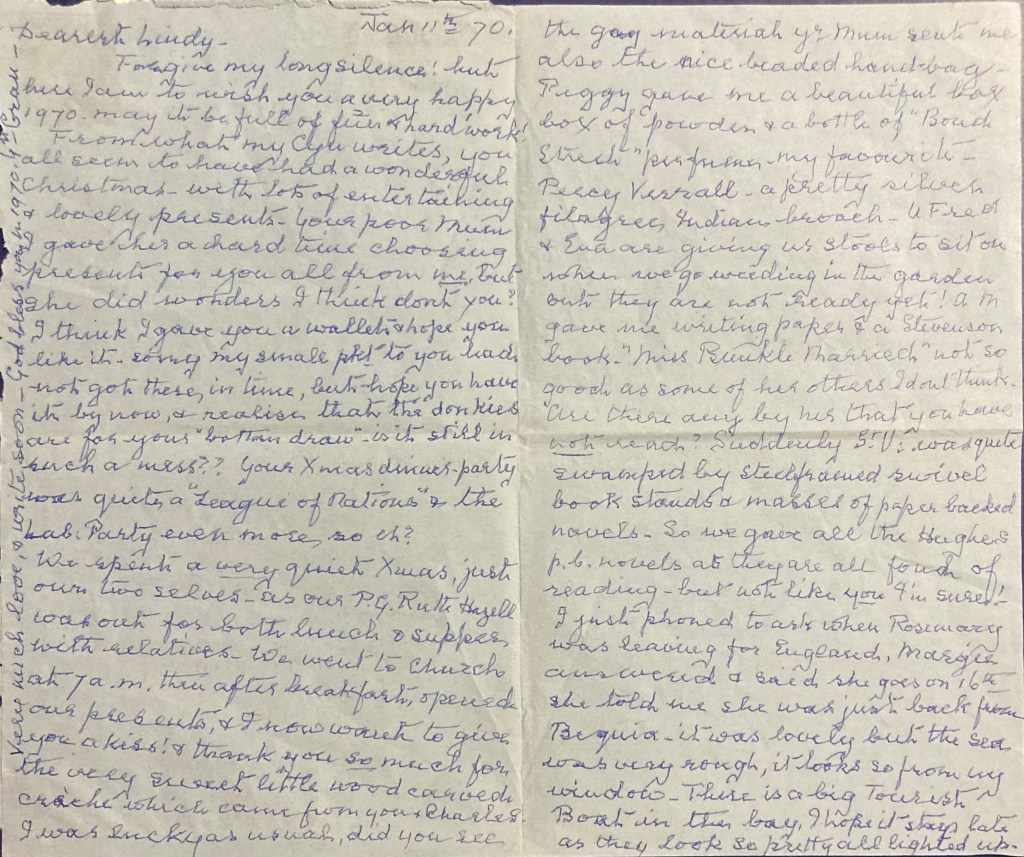 Jan 11th 70.
Dearest Lindy -
Forgive my long silence! but
here I am to wish you a very happy
1970 - may it be full of fun & hard work!
From what my Cyn writes, you
all seem to have had a wonderful
Christmas - with lots of entertaining
& lovely presents - Your poor Mum
gave her a hard time choosing
presents for you all from me, but
she did wonders I think dont you?
I think I gave you a wallet & hope you
like it - sorry my small pkt to you had
not got there, in time, but hope you have
it by now, & realise that the donkies
are for your "bottom draw" - is it still in
such a mess?? Your Xmas dinner-party
was quite a "League of Nations" & the
Lab: Party even more so eh?
We spent a very quiet Xmas, just
our two selves - as our P.G. Ruth Hazell
was out for both lunch & supper
with relatives - We went to Church
at 7 a.m. then after breakfast, opened
our presents, & I now want to give
you a kiss! & thank you so much for
the very sweet little wood carved
crèche which came from you & Charles -
I was lucky as usual, did you see
the gay material yr Mum sent me
also the nice beaded hand-bag -
Peggy gave me a beautiful box
box of powder & a bottle of "Bond
Street" perfume - my favourite -
Percy Verrall - a pretty silver
filagree, Indian brooch - U Fred
& Eva are giving us stools to sit on
when we go weeding in the garden
but they are not ready yet! A M
gave me writing paper & a Stevenson
book - "Miss Bunkle Married" not so
good as some of her others I dont think -
Are there any by her that you have
not read? Suddenly St. V: was quite
swamped by steel framed swivel
book stands & masses of paper backed
novels - So we gave all the Hughes
p.b. novels as they are all fond of
reading - but not like you I'm sure!
I just 'phoned to ask when Rosemary
was leaving for England, Margie
answered & said she goes on 16th
she told me she was just back from
Bequia - it was lovely but the sea
was very rough, it looks so from my
window - There is a big Tourist
Boat in the bay, I hope it stays late
as they look so pretty all lighted up -
Very much love, & write soon - God bless you in 1970 Yr Gran -